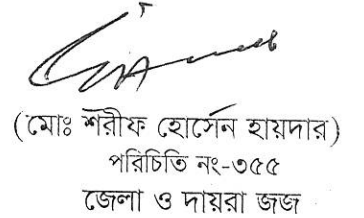 (মোঃ শরীফ হোসেন হায়দার)
পরিচিতি নং-৩৫৫
জেলা ও দায়রা জজ